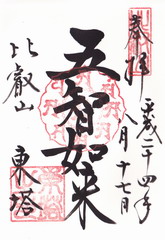 奉拝
平成二十四年
八月十七日
五智如来
比叡山
東塔